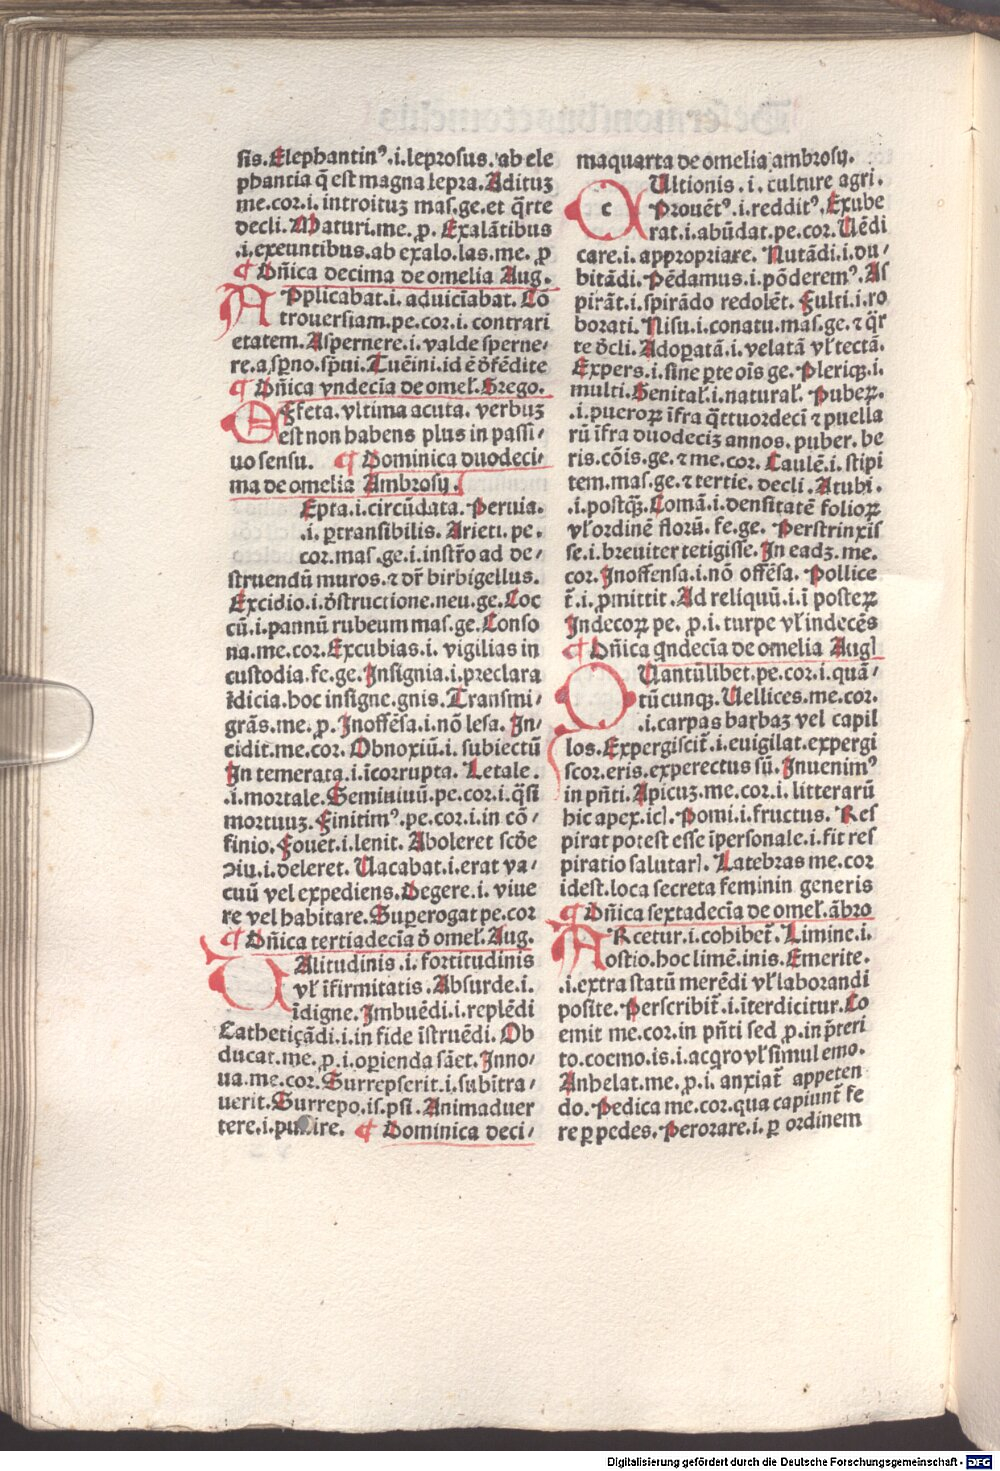 sis. Elephantinꝰ .i. leprosus. ab ele
phantia q̄ est magna lepra. Adituꝫ
me. cor. i. introituꝫ mas. ge. et q̄rte
decli. Maturi. me. ꝓ. Exalātibus
.i. exeuntibus. ab exalo. las. me. ꝓ
¶ Dn̄ica decima de omelia Aug.
APplicabat .i. adviciābat. Cō
troversiam. pe. cor. i. contrari
etatem. Aspernere .i. valde sperne⸗
re. a sꝑno. spvi. Tuēini. id ē
¶ Dn̄ica vndecīa de omel̄. Grego.
EFfeta. vltima acuta. verbuꝫ
est non habens plus in passi⸗
uo sensu. ¶ Dominica duodeci⸗
ma de omelia Ambrosÿ.
Epta .i. circūdata. Peruia.
.i. ꝑtransibilis. Arieti. pe.
cor. mas. ge. i. instr̄o ad de⸗
struendū muros. ⁊ dr̄ birbigellus.
Excidio .i. d̄structione. neu. ge. Coc
cū .i. pannū rubeum mas. ge. Conso
na. me. cor. Excubias .i. vigilias in
custodia. fe. ge. Insignia .i. preclara
īdicia. hoc insigne. gnis. Transmi⸗
grās. me. ꝓ. Inoffēsa .i. nō lesa. In⸗
cidit. me. cor. Obnoxiū .i. subiectū
In temerata .i. īcorrupta. Letale.
.i. mortale. Seminiuū. pe. cor. i. q̄si
mortuuꝫ. Finitimꝰ. pe. cor. i. in cō⸗
finio. Fouet .i. lenit. Aboleret scd̄e
ↄiu .i. deleret. Uacabat .i. erat va⸗
cuū vel expediens. Degere .i. viue
re vel habitare. Superogat pe. cor
¶ Dn̄ica tertiadecīa d̄ omel̄. Aug.
UAlitudinis .i. fortitudinis
vl̄ īfirmitatis. Absurde .i.
īdigne. Imbuēdi .i. replēdi
Catheticādi .i. in fide īstruēdi. Ob
ducat. me. ꝓ. i. oꝑienda sāet. Inno⸗
ua. me. cor. Surrepserit .i. subītra⸗
uerit. Surrepo. is. psi. Animaduer
tere .i. punire. ¶ Dominica deci⸗
maquarta de omelia ambrosÿ.
cUltionis .i. culture agri.
Prouētꝰ .i. redditꝰ. Exube
rat .i. abūdat. pe. cor. Uēdi
care .i. appropriare. Nutādi .i. du⸗
bitādi. Pēdamus .i. pōderemꝰ. As
pirāt .i. spirādo redolēt. Fulti .i. ro
borati. Nisu .i. conatu. mas. ge. ⁊ q̄r
te d̄cli. Adoꝑatā .i. velatā vl̄ tectā.
Expers .i. sine ꝑte ois ge. Pleriqꝫ .i.
multi. Genital̄ .i. natural̄. Pubeꝝ.
.i. pueroꝝ īfra q̄ttuordecī ⁊ puella
rū īfra duodeciꝫ annos. puber. be
ris. cōis. ge. ⁊ me. cor. Caulē .i. stipi
tem. mas. ge. ⁊ tertie. decli. At ubi.
.i. postqꝫ. Comā .i. densitatē folioꝝ
vl̄ ordinē florū. fe. ge. Perstrinxis
se .i. breuiter tetigisse. In eadꝫ. me.
cor. Inoffensa .i. nō offēsa. Pollice
t̄ .i. ꝓmittit. Ad reliquū .i. ī posteꝝ
Indecoꝝ pe. ꝓ. i. turpe vl̄ indecēs
¶ Dn̄ica qndecīa de omelia Augꝉ
QUantūlibet. pe. cor. i. quā⸗
tūcunqꝫ. Uellices. me. cor.
.i. carpas barbaꝫ vel capil
los. Expergiscit̄ .i. euigilat. expergi
scor. eris. experectus sū. Inuenimꝰ
in pn̄ti. Apicuꝫ. me. cor. i. litterarū
hic apex. icꝉ. Pomi .i. fructus. Res
pirat potest esse īpersonale .i. fit res
piratio salutarꝉ. Latebras me. cor
idest. loca secreta feminin generis
¶ Dn̄ica sextadecīa de omel̄. ābro
ARcetur .i. cohibet̄. Limine .i.
ostio. hoc limē. inis. Emerite.
.i. extra statū merēdi vl̄ laborandi
posite. Perscribit̄ .i. īterdicitur. Co
emit me. cor. in pn̄ti sed ꝓ. in p̄teri
to. coemo. is. i. acq̄ro vl̄ simul emo.
Anhelat. me. ꝓ. i. anxiat̄ appeten
do. Pedica me. cor. qua capiunt̄ fe
re ꝑ pedes. Perorare .i. ꝑ ordinem
Digitalisierung gefördert durch die Deutsche Forschungsgemeinschaft - DFG